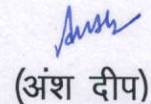 (अंश दीप)